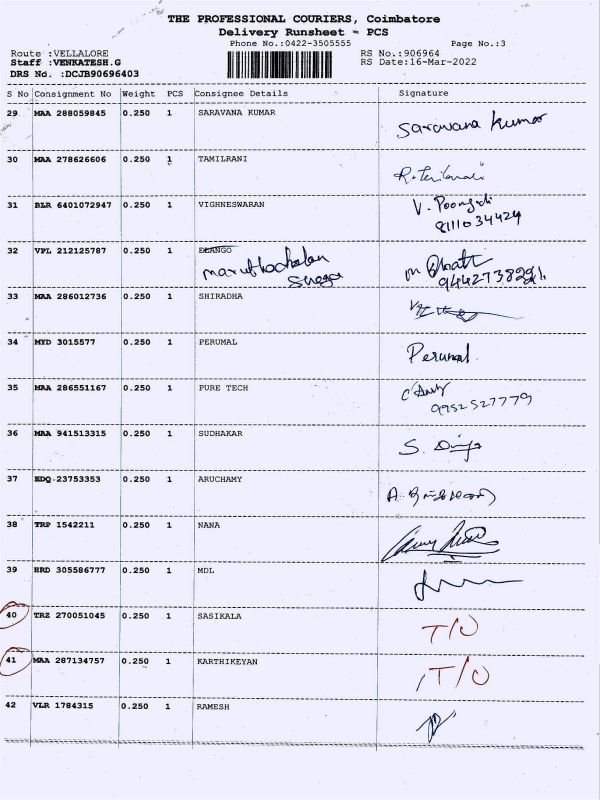 THE PROFESSIONAL COURIERS, Coimbatore
Delivery Runsheet - PCS
Phone No.:0422-3505555 Page No.:3
Route :VELLALORE RS No.:906964
Staff :VENKATESH.G RS Date:16-Mar-2022
DRS No. :DCJB90696403
S No Consignment No Weight PCS Consignee Details Signature
29 MAA 288059845 0.250 1 SARAVANA KUMAR Saravana Kumar
30 MAA 278626606 0.250 1 TAMILRANI
31 BLR 6401072947 0.250 1 VIGHNESWARAN V. Poongodi
8111034424
32 VPL 212125787 0.250 1 ELANGO
33 MAA 286012736 0.250 1 SHIRADHA
34 MYD 3015577 0.250 1 PERUMAL Perumal
35 MAA 286551167 0.250 1 PURE TECH
9952527779
36 MAA 941513315 0.250 1 SUDHAKAR
37 EDQ 23753353 0.250 1 ARUCHAMY
38 TRP 1542211 0.250 1 NANA
39 HRD 305586777 0.250 1 MDL
40 TRZ 270051045 0.250 1 SASIKALA T/O
41 MAA 287134757 0.250 1 KARTHIKEYAN T/O
42 VLR 1784315 0.250 1 RAMESH